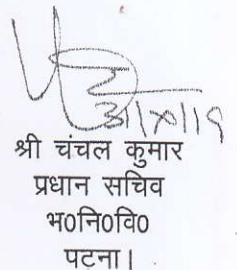 श्री चंचल कुमार
प्रधान सचिव
भ०नि०वि०
पटना।